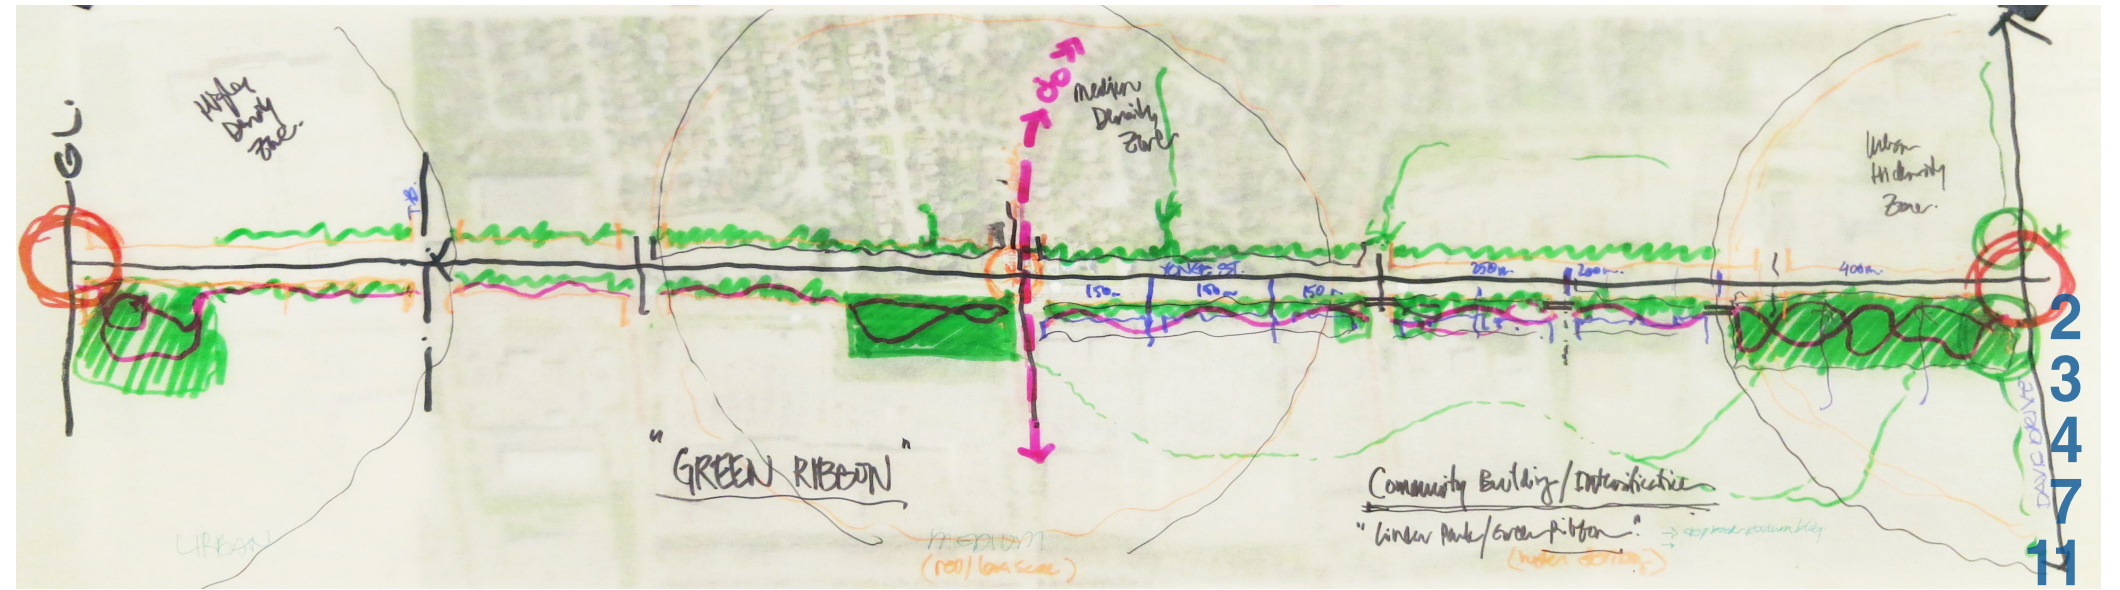 GL.
Higher
Density
Zone.
T.B.
Medium
Density
Zone
Urban
Hi density
Zone.
YONGE ST.
150m
150m
150m
250m
200m
400m
DAVIS DRIVE
"GREEN RIBBON"
Community Building/Intensification
"Linear Park/Green Ribbon"
URBAN
MEDIUM
(res/low scale)
2
3
4
7
11